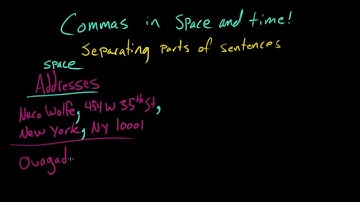 Commas in Space and time!
Separating parts of sentences
space
Addresses
Nero Wolfe, 454 W 35th St,
New York, NY 10001
Ouagad